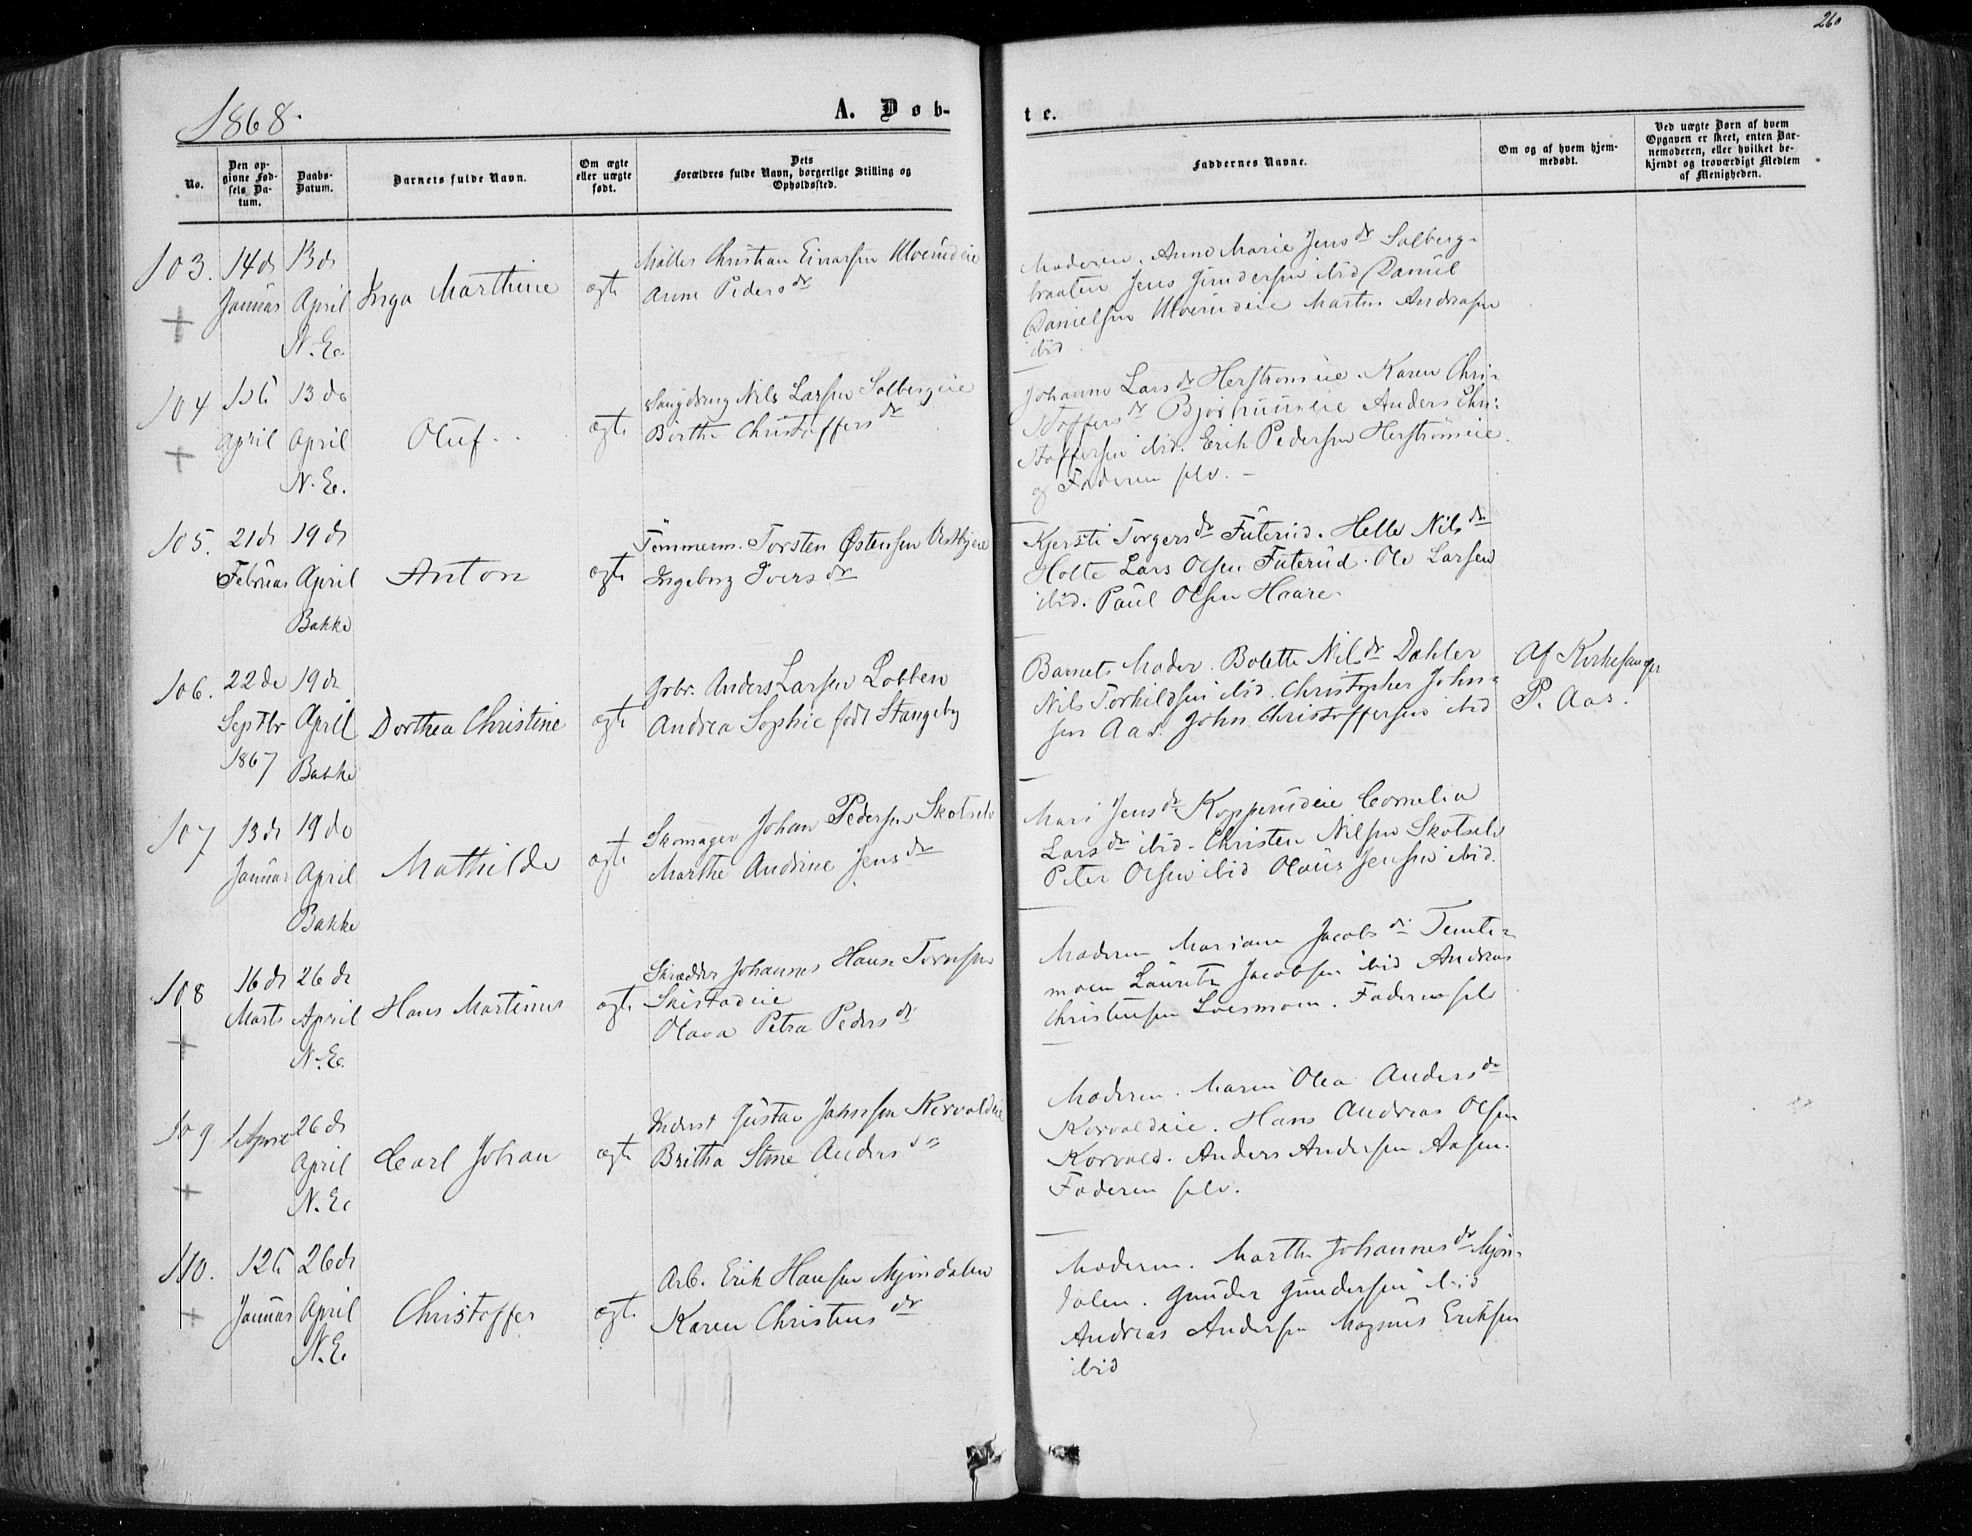 260
1868.
A. Døb-
te.
No.
Den op-
givne Fød-
sels Da-
tum.
Daabs-
Datum.
Barnets fulde Navn.
Om ægte
eller uægte
født.
Dets
Forældres fulde Navn, borgerlige Stilling og
Opholdssted.
Faddernes Navne.
Om og af hvem hjem-
medøbt.
Ved uægte Børn af hvem
Opgaven er skeet, enten Bar-
nemoderen, eller hvilket be-
kjendt og troværdigt Medlem
af Menigheden.
103. 14de 13de
Januar April
N. E.
Inga Marthine
ægte
Møller Christian Einarsen Ulverudeie
Anne Pedersdr
Moderen. Anne Marie Jensdr Solberg-
braaten Jens Gundersen ibid Daniel
Danielsen Ulverudeie Martin Andreasen
ibid.
104 13de
April April
N. E.
Oluf.
ægte
Nils Larsen Solbergeie
Birthe Christoffersdr
Johanne Larsdr Herstrømeie. Karen Chri-
stoffersdr Anders Chri-
stoffersen ibid. Erik Pedersen Herstrømeie.
og Faderen selv. -
105. 21de 19de
Februar April
Bakke
Anton
ægte
Tømmerm. Torsten Østensen
Ingeborg Iversdr
Kjersti Torgersdr Futerud. Helle Nilsdr
Holte Lars Olsen Futerud. Ole Larsen
ibid. Paul Olsen Haare.
106. 22de 19de
Septbr April
1867 Bakke
Dorthea Christine
ægte
Gbr. Anders Larsen Lobben
Andrea Sophie født Stangeby
Barnets Moder. Bolette Nilsdr Dahler
Nils Torkildsen ibid. Christopher John-
sen Aas. John Christoffersen ibid
Af Kirkesanger
P. Aas.
107 13de 19de
Januar April
Bakke
Mathilde
ægte
Skomager Johan Pedersen Skotselv
Marthe Andrine Jensdr
Mari Jensdr Kopperudeie Cornelia
Larsdr ibid. Christen Nilsen Skotselv
Peter Olsen ibid Olaus Jensen ibid.
108 16de 26de
Marts April
N. E.
Hans Martinus
ægte
Skrædder Johannes Hansen
Skistadeie
Olava Petra Pedersdr
Moderen Mariane Jacobsdr Temte-
moen Lauritz Jacobsen ibid Andreas
Christensen Loesmoen. Faderen selv
109 1 April 26de
April
N. E.
Carl Johan
ægte
Inderst Gustav Korvaldeie
Britha Stine Andersdr
Moderen. Maren Olea Andersdr
Korvaldeie. Hans Andreas Olsen
Korvald. Anders Andersen Aasen.
Faderen selv.
110. 12te 26de
Januar April
N. E.
Christoffer
ægte
Arb. Erik Hansen Mjøndalen
Karen Christensdr
Moderen. Marthe Johannesdr Mjøn-
dalen. Gunder Gundersen ibid
Andreas Andersen Magnus Eriksen
ibid